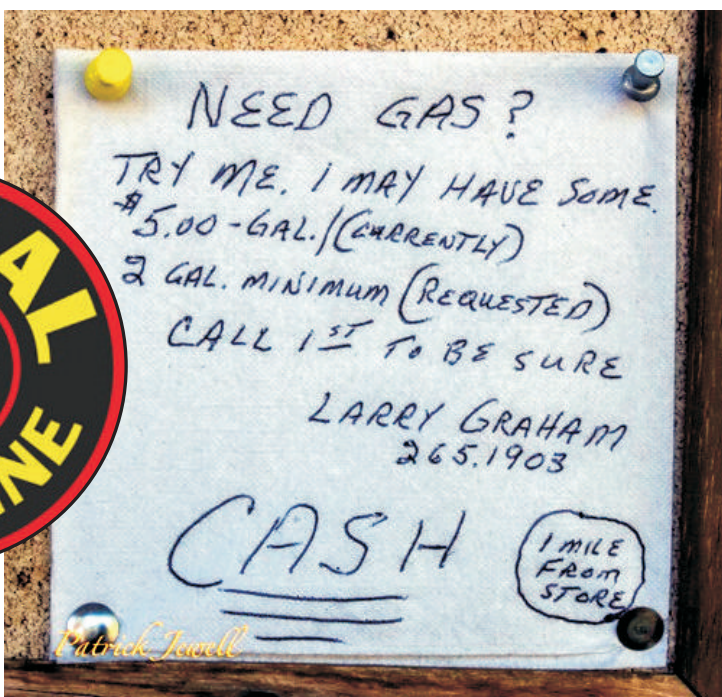 NEED GAS?
TRY ME. I MAY HAVE SOME.
$5.00-GAL./(CURRENTLY)
2 GAL. MINIMUM (REQUESTED)
CALL 1ST TO BE SURE
LARRY GRAHAM
265.1903
CASH
1 MILE
FROM
STORE
Patrick Jewell